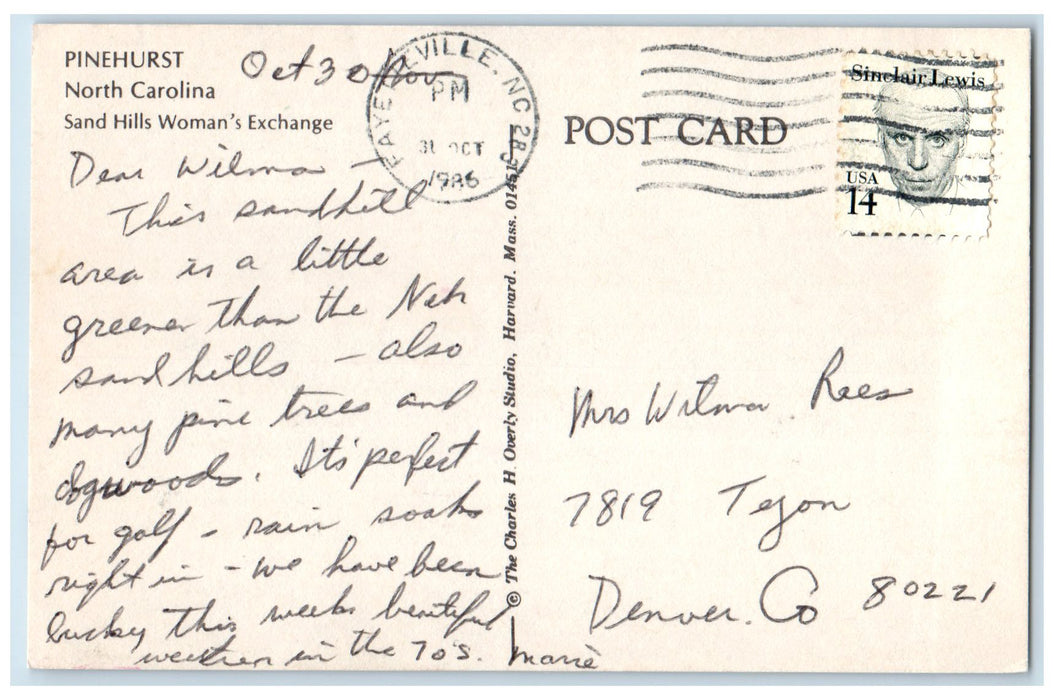 PINEHURST
North Carolina
Sand Hills Woman's Exchange
Oct 30 Nov
Dear Wilma —
This sandhill
area is a little
greener than the Neb
sandhills — also
many pine trees and
dogwoods. It's perfect
for golf - rain soaks
right in - we have been
lucky this weeks beautiful
weather in the 70's. Marie
FAYETTEVILLE, NC 283
PM
31 OCT
1986
© The Charles H. Overly Studio, Harvard. Mass. 01451
POST CARD
Sinclair Lewis
USA
14
Mrs Wilma Rees
7819 Tejon
Denver. Co 80221